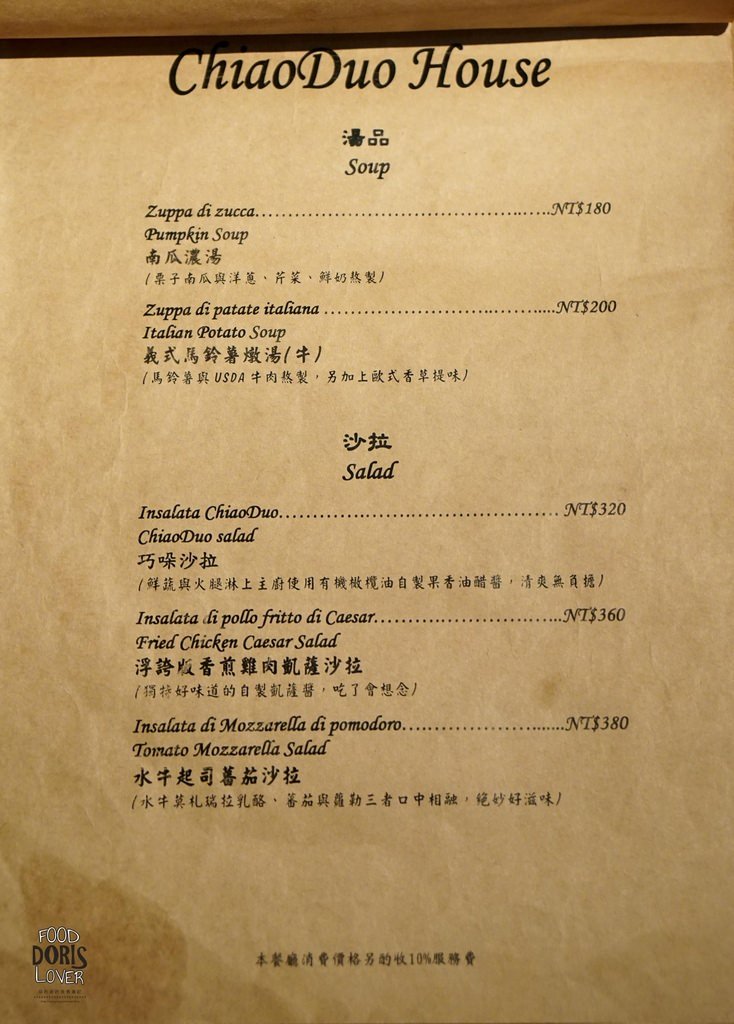 ChiaoDuo House
湯品
Soup
Zuppa di zucca……………………………………..…..NT$180
Pumpkin Soup
南瓜濃湯
(栗子南瓜與洋蔥、芹菜、鮮奶熬製)
Zuppa di patate italiana ……………………..……....NT$200
Italian Potato Soup
義式馬鈴薯燉湯(牛)
(馬鈴薯與USDA牛肉熬製，另加上歐式香草提味)
沙拉
Salad
Insalata ChiaoDuo……………………………………… NT$320
ChiaoDuo salad
巧哚沙拉
(鮮蔬與火腿淋上主廚使用有機橄欖油自製果香油醋醬，清爽無負擔)
Insalata di pollo fritto di Caesar…………………………...NT$360
Fried Chicken Caesar Salad
浮誇版香煎雞肉凱薩沙拉
(獨特好味道的自製凱薩醬，吃了會想念)
Insalata di Mozzarella di pomodoro……………….…....NT$380
Tomato Mozzarella Salad
水牛起司蕃茄沙拉
(水牛莫札瑞拉乳酪、蕃茄與蘿勒三者口中相融，絕妙好滋味)
本餐廳消費價格另酌收10%服務費
FOOD
DORIS
LOVER